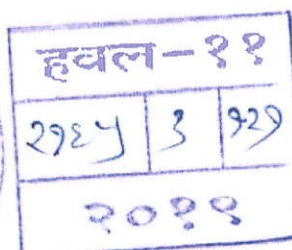 हवल-११
२१६५ ३ १२१
२०१९